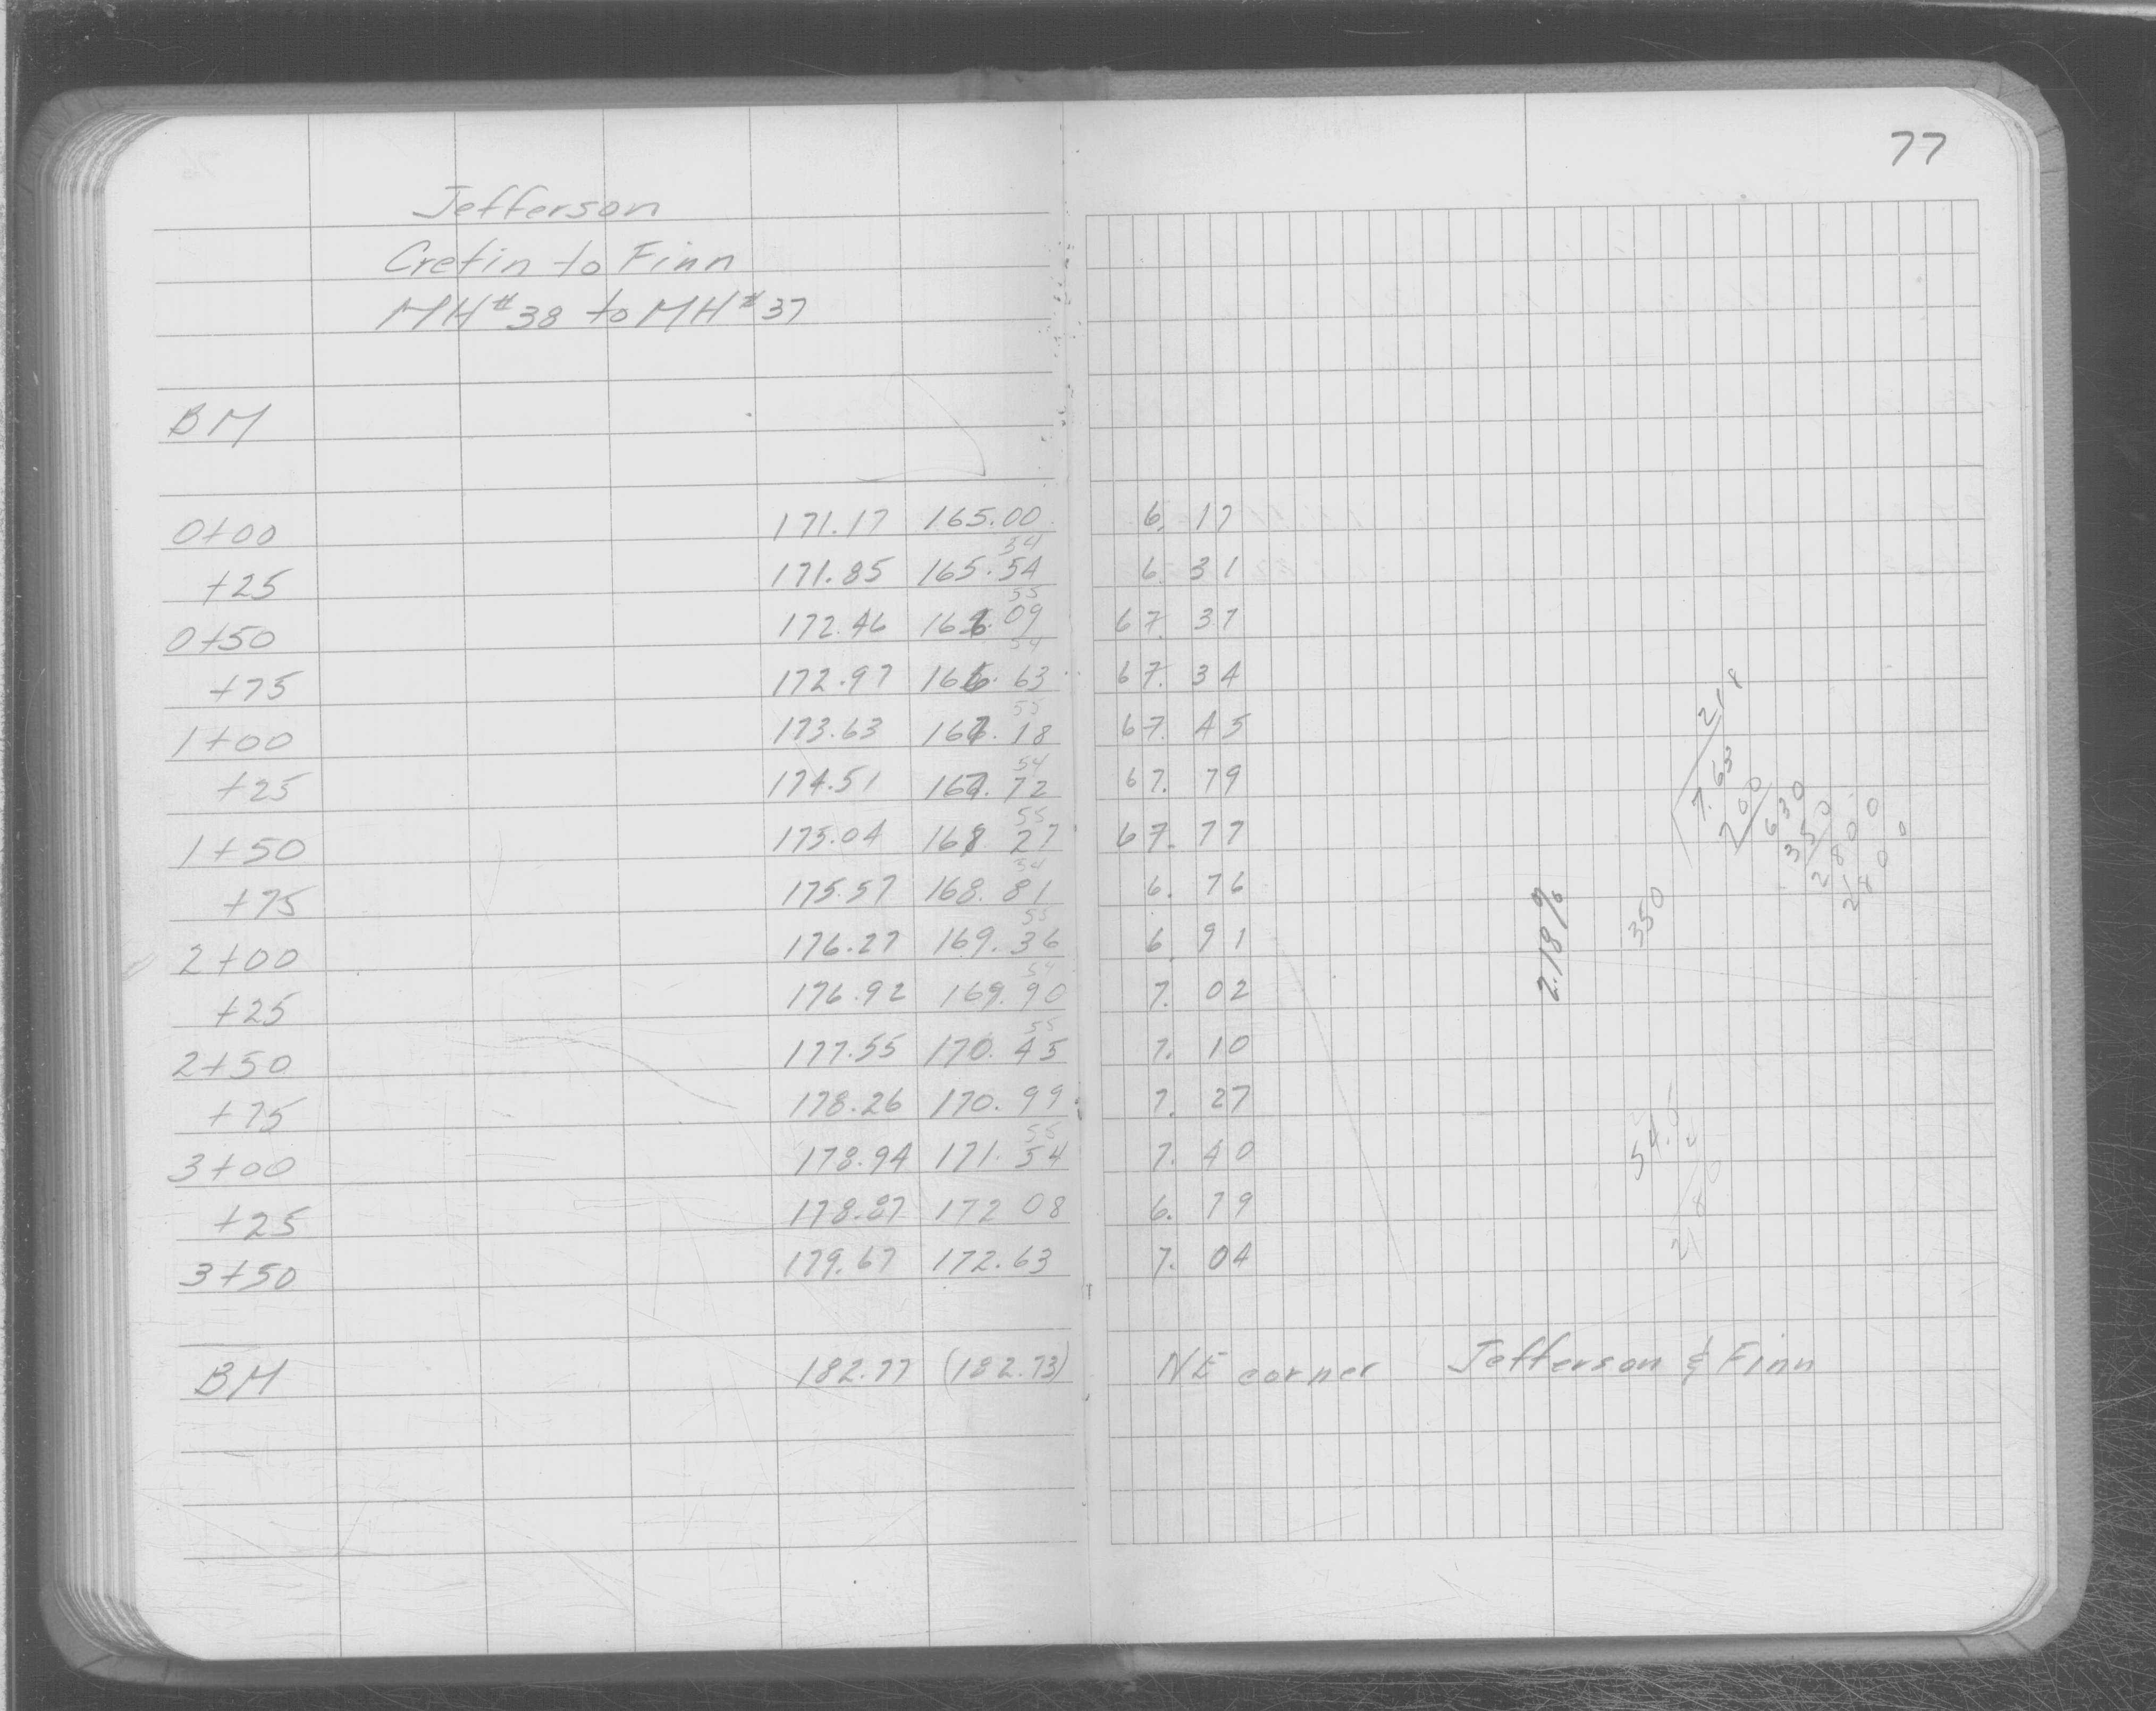 77
Jefferson
Cretin to Finn
MH#38 to MH#37
BM
0+00 171.17 165.00 6.17
54
+25 171.85 165.54 6.31
55
0+50 172.46 166.09 67.37
54
+75 172.97 166.63 67.34
55
1+00 173.63 167.18 67.45
54
+25 174.51 167.72 67.79
55
1+50 175.04 168.27 67.77
54
+75 175.57 168.81 6.76
55
2+00 176.27 169.36 6.91
54
+25 176.92 169.90 7.02
55
2+50 177.55 170.45 7.10
+75 178.26 170.99 7.27
55
3+00 178.94 171.54 7.40
+25 178.87 172 08 6.79
3+50 179.67 172.63 7.04
BM 182.77 (182.73) NE corner Jefferson & Finn
2.18%
218
350 7.63
700
630
350
2800
2800
2180